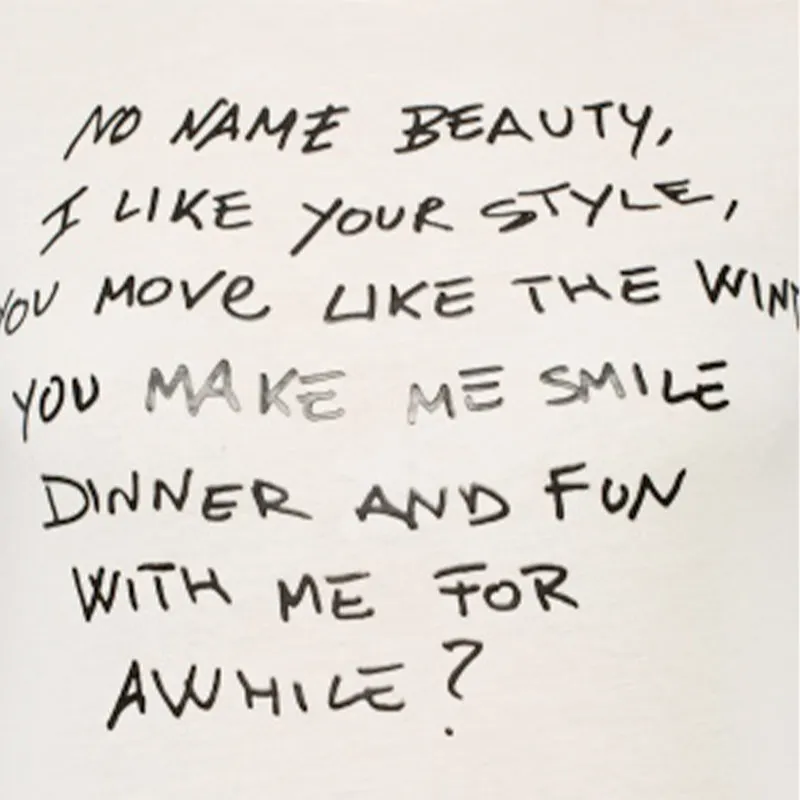 NO NAME BEAUTY,
I LIKE YOUR STYLE,
YOU MOVE LIKE THE WIND
YOU MAKE ME SMILE
DINNER AND FUN
WITH ME FOR
AWHILE?